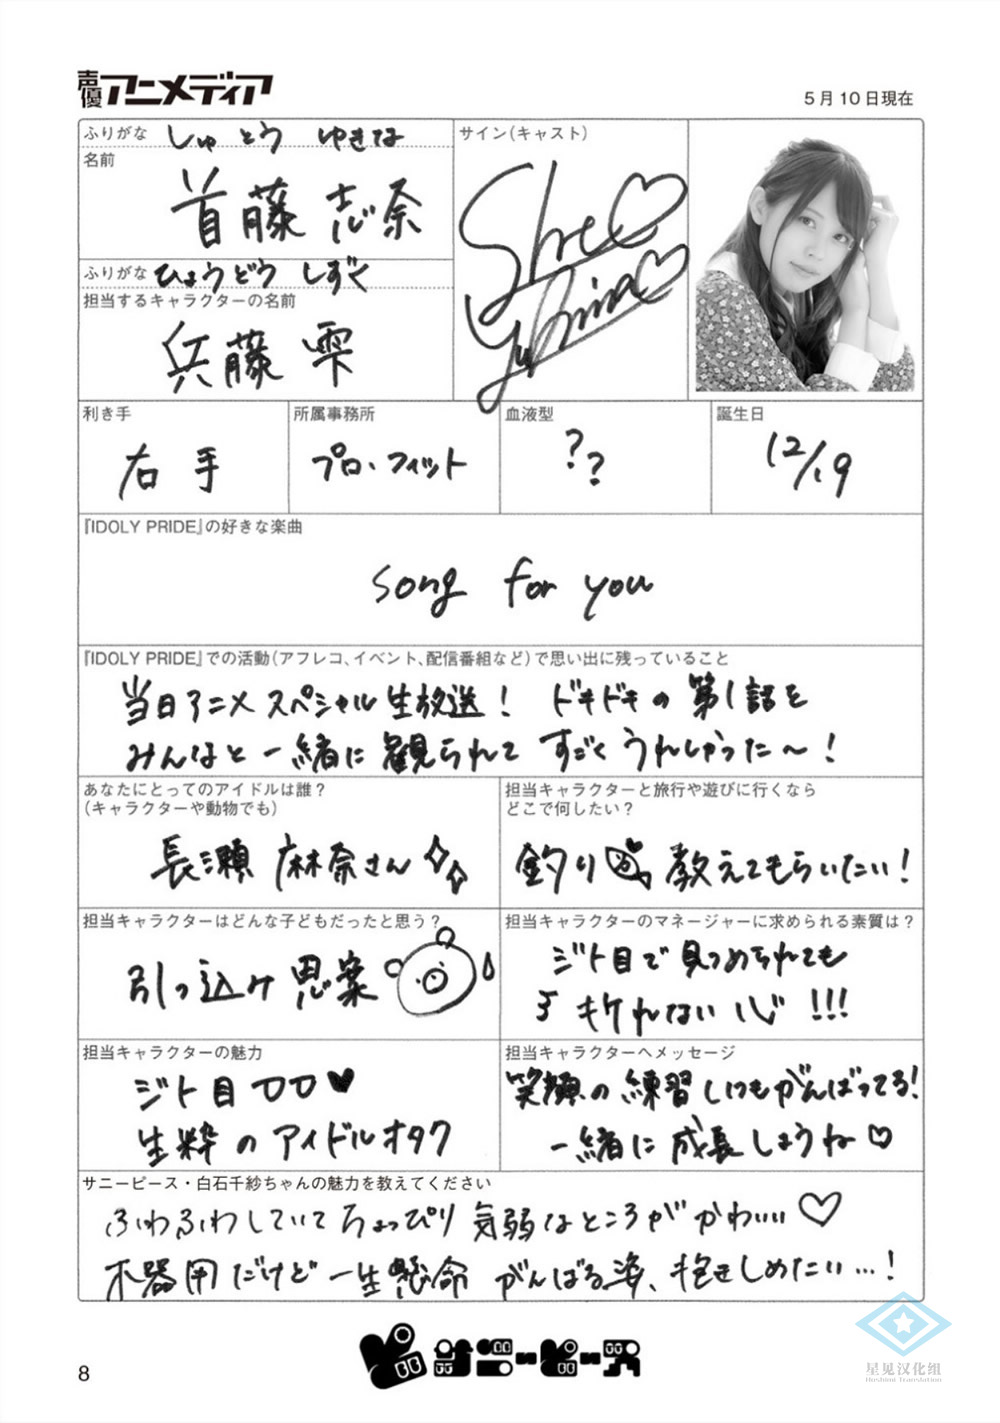 声優アニメディア
5月10日現在
ふりがな しゅとう ゆきな
名前
首藤 志奈
ふりがな ひょうどう しずく
担当するキャラクターの名前
兵藤 雫
サイン(キャスト)
利き手
右手
所属事務所
プロ・フィット
血液型
??
誕生日
12/19
『IDOLY PRIDE』の好きな楽曲
song for you
『IDOLY PRIDE』での活動(アフレコ、イベント、配信番組など)で思い出に残っていること
当日アニメスペシャル生放送! ドキドキの第1話を
みんなと一緒に観られてすごくうれしかった〜!
あなたにとってのアイドルは誰?
(キャラクターや動物でも)
長瀬 麻奈さん
担当キャラクターと旅行や遊びに行くなら
どこで何したい?
釣り 教えてもらいたい!
担当キャラクターはどんな子どもだったと思う?
引っ込み思案
担当キャラクターのマネージャーに求められる素質は?
ジト目で見つめられても
キケれない心!!!
担当キャラクターの魅力
ジト目ロロ♥
生粋のアイドルオタク
担当キャラクターへメッセージ
笑顔の練習いつもがんばってる!
一緒に成長しようね♡
サニーピース・白石千紗ちゃんの魅力を教えてください
ふわふわしていてちょっぴり気弱なところがかわいい♡
不器用だけど一生懸命がんばる姿、抱きしめたい…!
サニーピース
8
星见汉化组
Hoshimi Translation